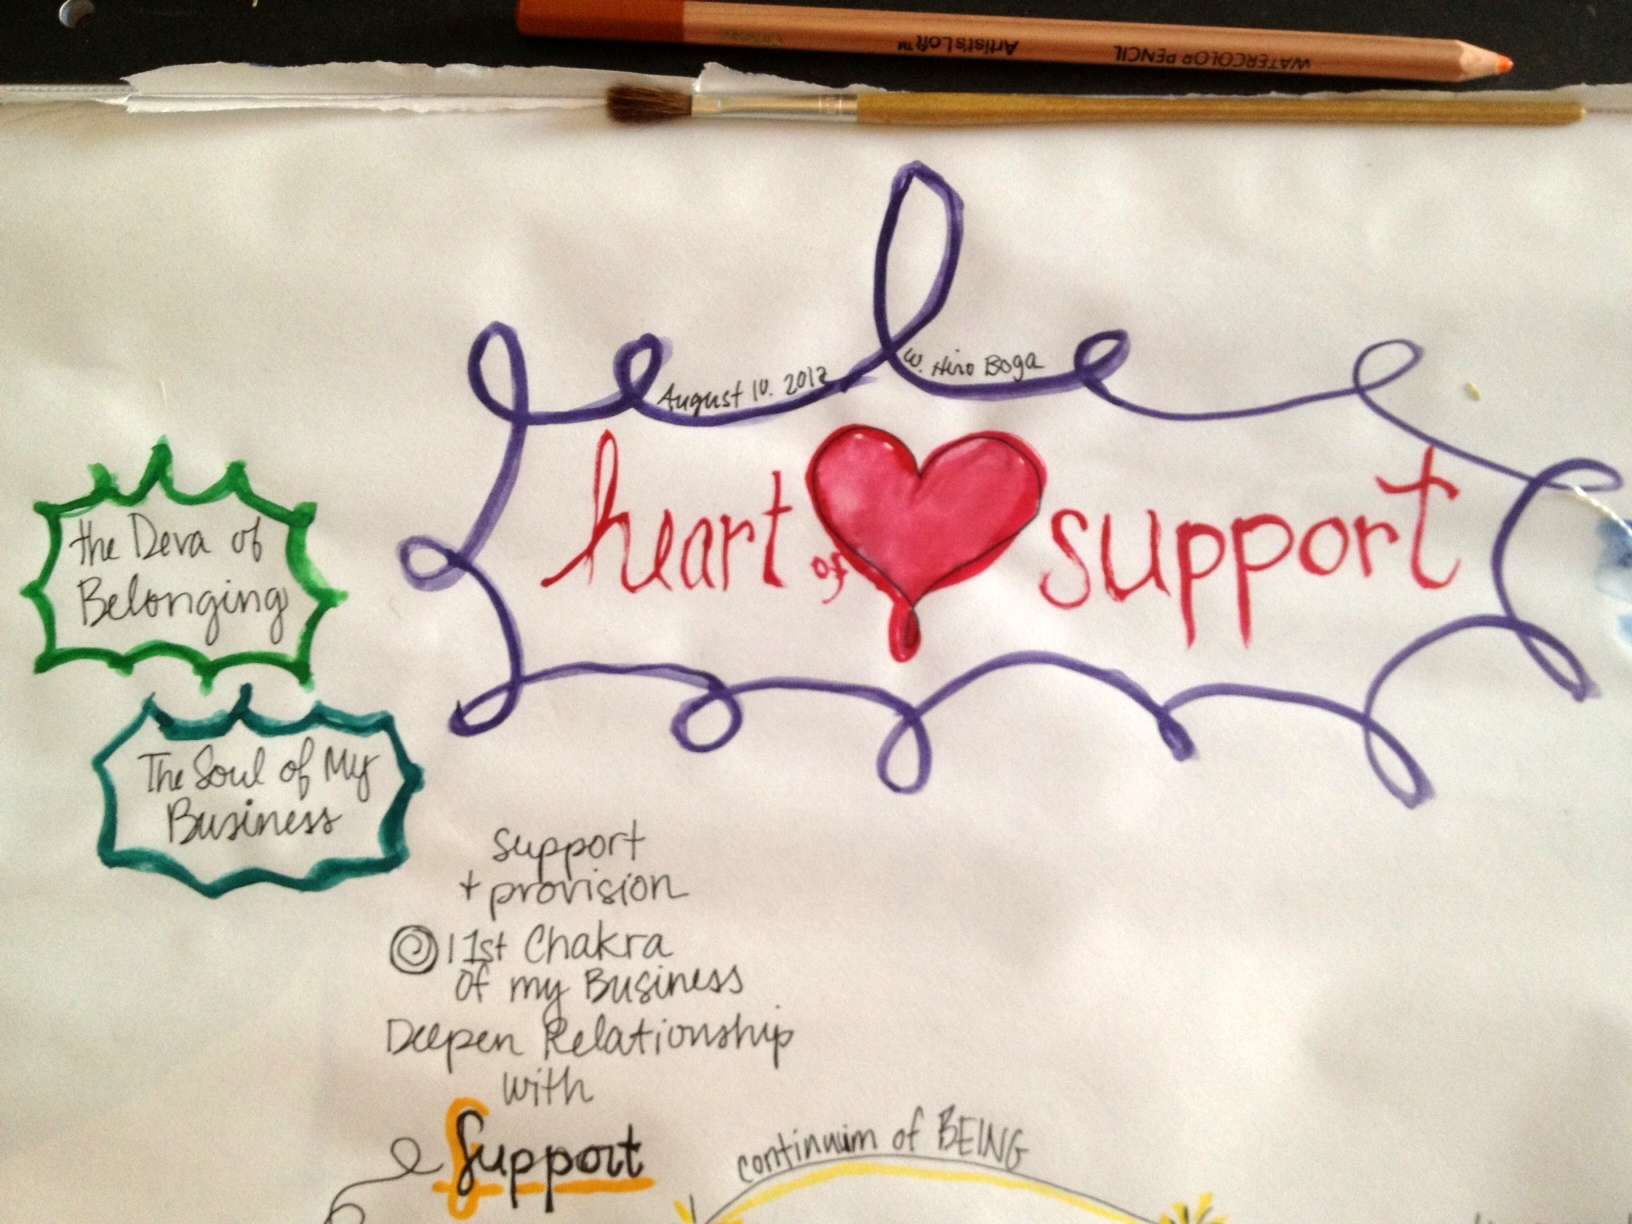 WATERCOLOR PENCIL Artist's Loft™
August 10. 2012
W. Hiro Boga
heart of support
the Deva of
Belonging
The Soul of My
Business
support
+ provision
1st Chakra
of my Business
Deepen Relationship
with
Support
continuum of BEING